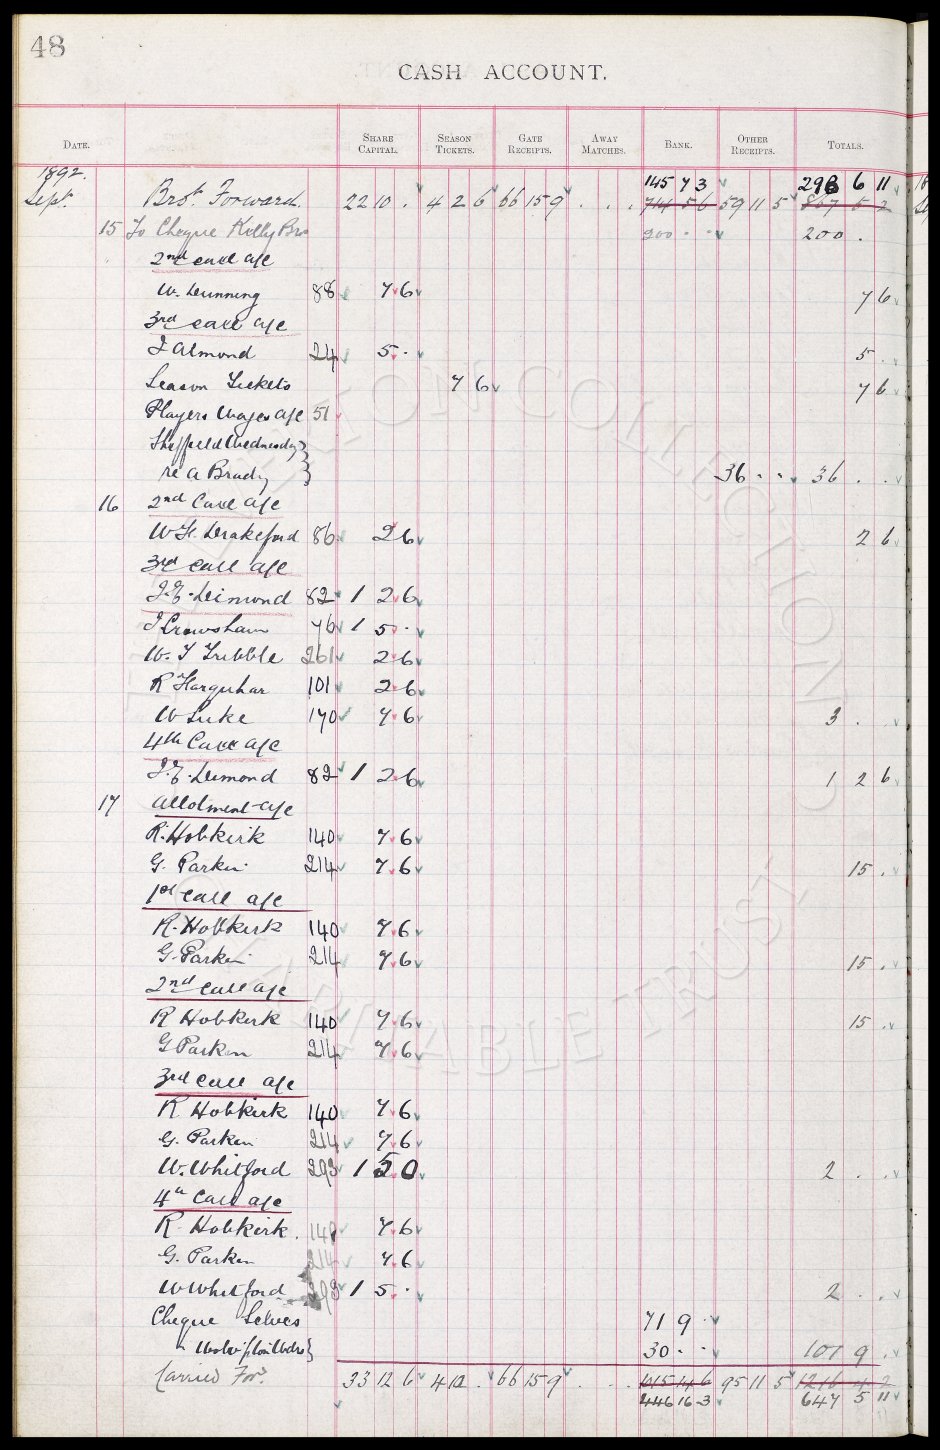 48
CASH ACCOUNT.
DATE. SHARE CAPITAL. SEASON TICKETS. GATE RECEIPTS. AWAY MATCHES. BANK. OTHER RECEIPTS. TOTALS.
1892. 145 7 3 298 6 11
Sept. Brot. Forward. 22 10 . 4 2 6 66 15 9 . . . 714 5 6 59 11 5 867 5 2
15 To Cheque Kelly Bro 200 . . 200 .
2nd call a/c
W. Dunning 88 7 6 7 6
3rd call a/c
J Almond 24 5 . 5 .
Season Tickets 7 6 7 6
Players Wages a/c 51
Sheffield Wednesday }
re A Brady } 36 . . 36 . .
16 2nd Call a/c
W H. Drakeford 86 2 6 2 6
3rd call a/c
J. E. Dimond 82 1 2 6
J Crowsham 76 1 5 .
W. T Tribble 261 2 6
R Farquhar 101 2 6
W Luke 170 7 6 3 . .
4th Call a/c
J. E. Dimond 82 1 2 6 1 2 6
17 Allotment a/c
R. Hobkirk 140 7 6
G. Parken 214 7 6 15 .
1st call a/c
R. Hobkirk 140 7 6
G. Parken 214 7 6 15 .
2nd call a/c
R Hobkirk 140 7 6 15 .
G Parken 214 7 6
3rd call a/c
R Hobkirk 140 7 6
G. Parken 214 7 6
W. Whitford 293 1 5 0 2 . .
4th Call a/c
R. Hobkirk. 140 7 6
G. Parken 214 7 6
W Whitford 293 1 5 . 2 . .
Cheque Selves 71 9 .
" } 30 . . 101 9 .
Carried For. 33 12 6 4 10 . 66 15 9 . . . 1015 14 6 95 11 5 1216 4 2
446 16 3 647 5 11